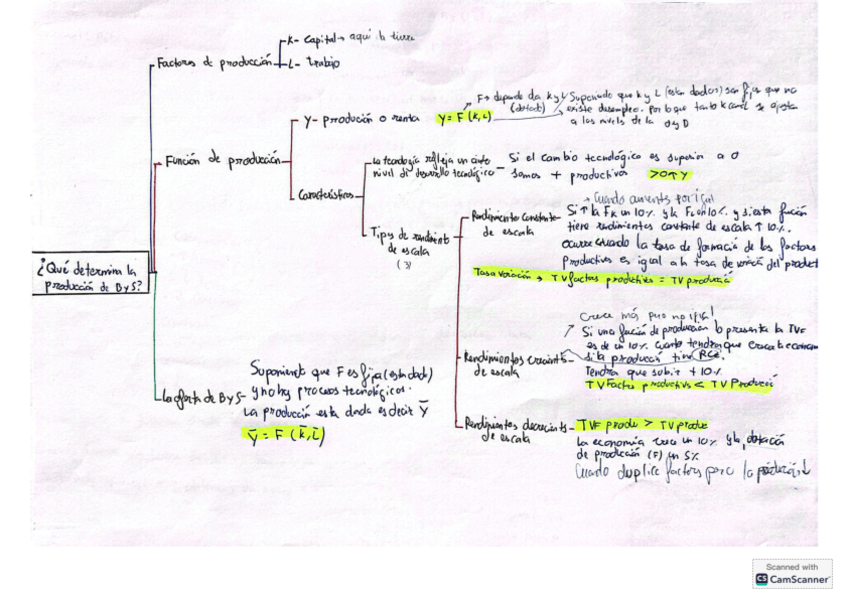 Factores de producción
K- Capital → aquí la tierra
L- Trabajo
Función de producción
Y- produción o renta
Y = F (K, L)
F → depende da K y L
Suponiendo que K y L (están dados) son fijos que no
existe desempleo. Por lo que tanto K como L se ajusta
a los niveles de la O y D
Características
La tecnología refleja un cierto
nivel di desarrollo tecnológico
Si el cambio tecnológico es superior a 0
somos + productivos >0↑Y
Tipos de rendimiento
de escala
(3)
Rendimiento constante
de escala
Cuando aumenta por igual
Si ↑ la FK un 10% y la FL en 10%. y si esta función
tiene rendimientos constante de escala ↑ 10%.
ocurre cuando la tasa de formación de los factores
productivos es igual a la tasa de variació del product
Tasa variación → TV factores productivos = TV producció
¿Qué determina la
producción de B y S?
Rendimientos creciente
de escala
Crece más pero no igual!
Si una función de produccion lo presenta la TVF
es de un 10% cuanto tendra que crecer la econom
si la producció tiene RCE.
Tendra que subir + 10%
TV Factos productivos < TV Producció
La oferta de B y S
Suponiendo que F es fija (está dada)
y no hay procesos tecnológicos.
La producción esta dada es decir Y̅
Y̅ = F (K̅, L̅)
Rendimientos decrecients
de escala
TVF produ > TV produc
La economía crece un 10% y la dotación
de producción (F) un 5%
Cuando duplice factors pero la producción ↓
Scanned with
CS CamScanner